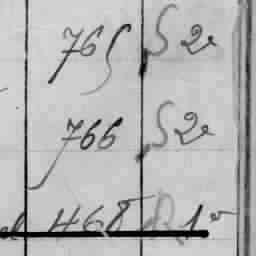 765 S 2e
766 S 2e
468 1e